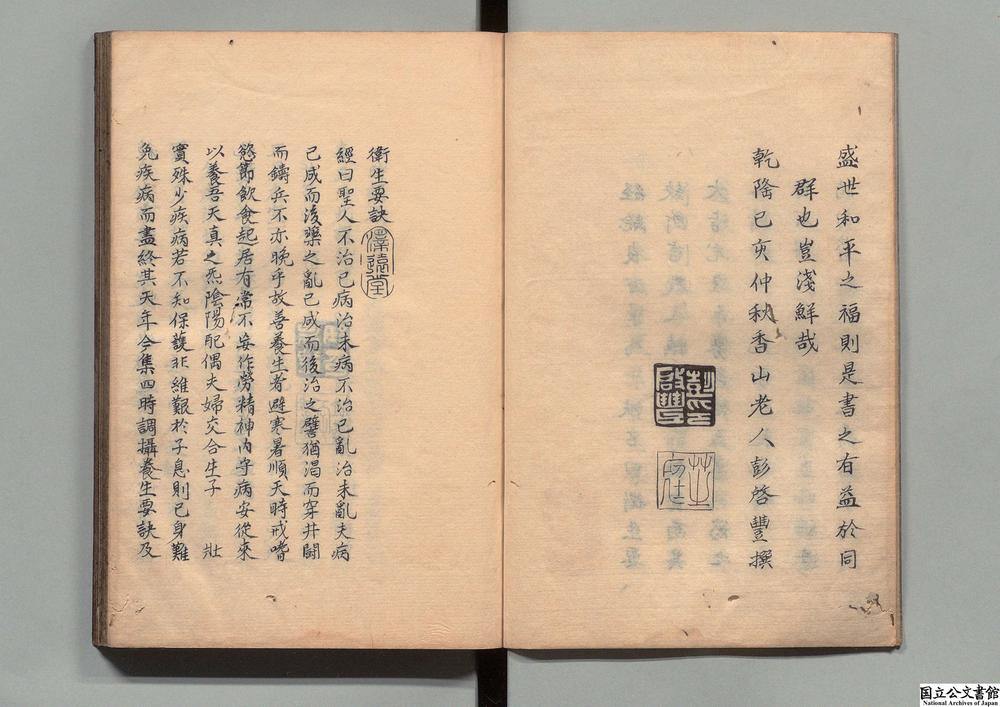 盛世和平之福則是書之有益於同
群也豈淺鮮哉
乾隆已亥仲秋香山老人彭啓豐撰
衛生要訣
經曰聖人不治已病治未病不治已亂治未亂夫病
已成而後藥之亂已成而後治之譬猶渴而穿井鬪
而鑄兵不亦晚乎故善養生者避寒暑順天時戒嗜
慾節飲食起居有常不妄作勞精神內守病安從來
以養吾天真之炁陰陽配偶夫婦交合生子 壯
實殊少疾病若不知保護非維艱於子息則已身難
免疾病而盡終其天年今集四時調攝養生要訣及
国立公文書館
National Archives of Japan